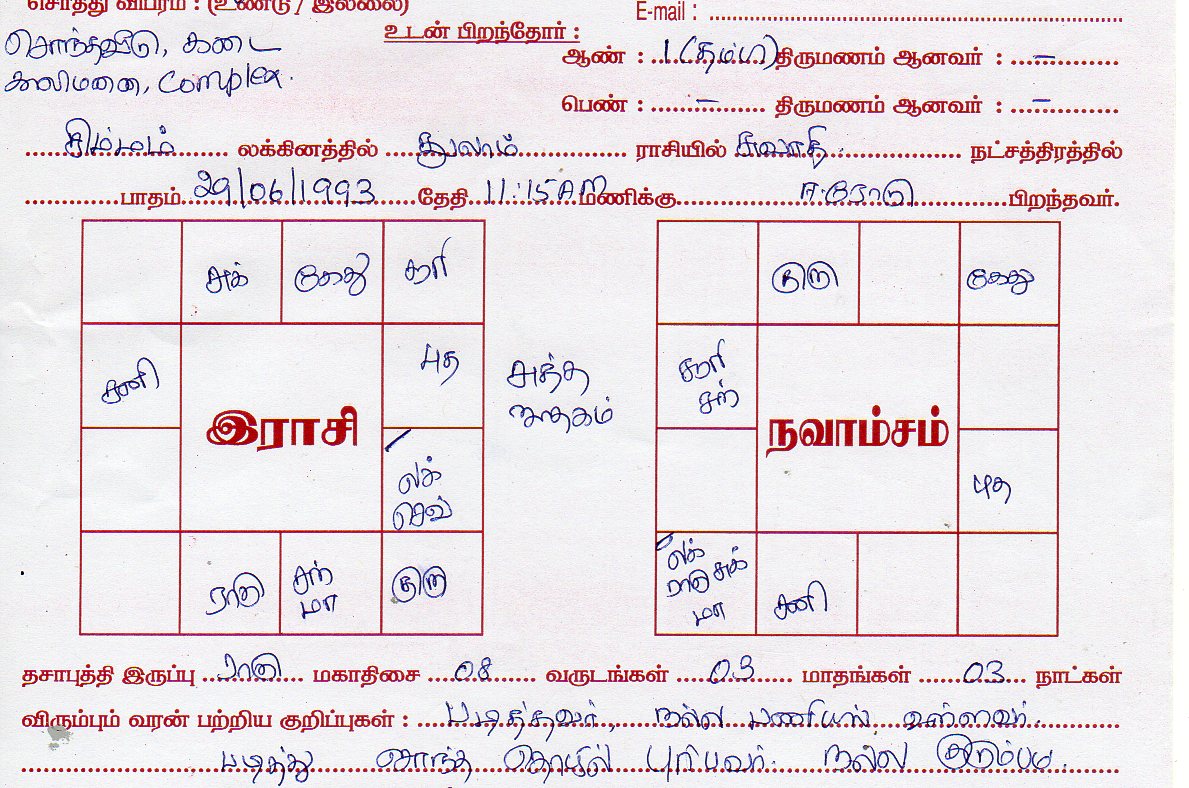 சொத்து விபரம் : (உண்டு / இல்லை)
E-mail :
சொந்தவீடு, கடை
காலிமனை, Complex.
உடன் பிறந்தோர் :
ஆண் : 1 (தம்பி) திருமணம் ஆனவர் : –
பெண் : – திருமணம் ஆனவர் : –
சிம்மம் லக்கினத்தில் துலாம் ராசியில் சுவாதி நட்சத்திரத்தில்
பாதம் 29/06/1993 தேதி 11:15 AM மணிக்கு ஈரோடு பிறந்தவர்.
சுக் கேது சூரி
சனி புத
இராசி
லக்
செவ்
ராகு சந் குரு
மா
சுத்த
ஜாதகம்
குரு கேது
சூரி
சந்
நவாம்சம்
புத
லக்
ராகு சுக் சனி
மா
தசாபுத்தி இருப்பு ராகு மகாதிசை 08 வருடங்கள் 03 மாதங்கள் 03 நாட்கள்
விரும்பும் வரன் பற்றிய குறிப்புகள் : படித்தவர், நல்ல பணியில் உள்ளவர்.
படித்து சொந்த தொழில் புரிபவர். நல்ல குடும்பம்.